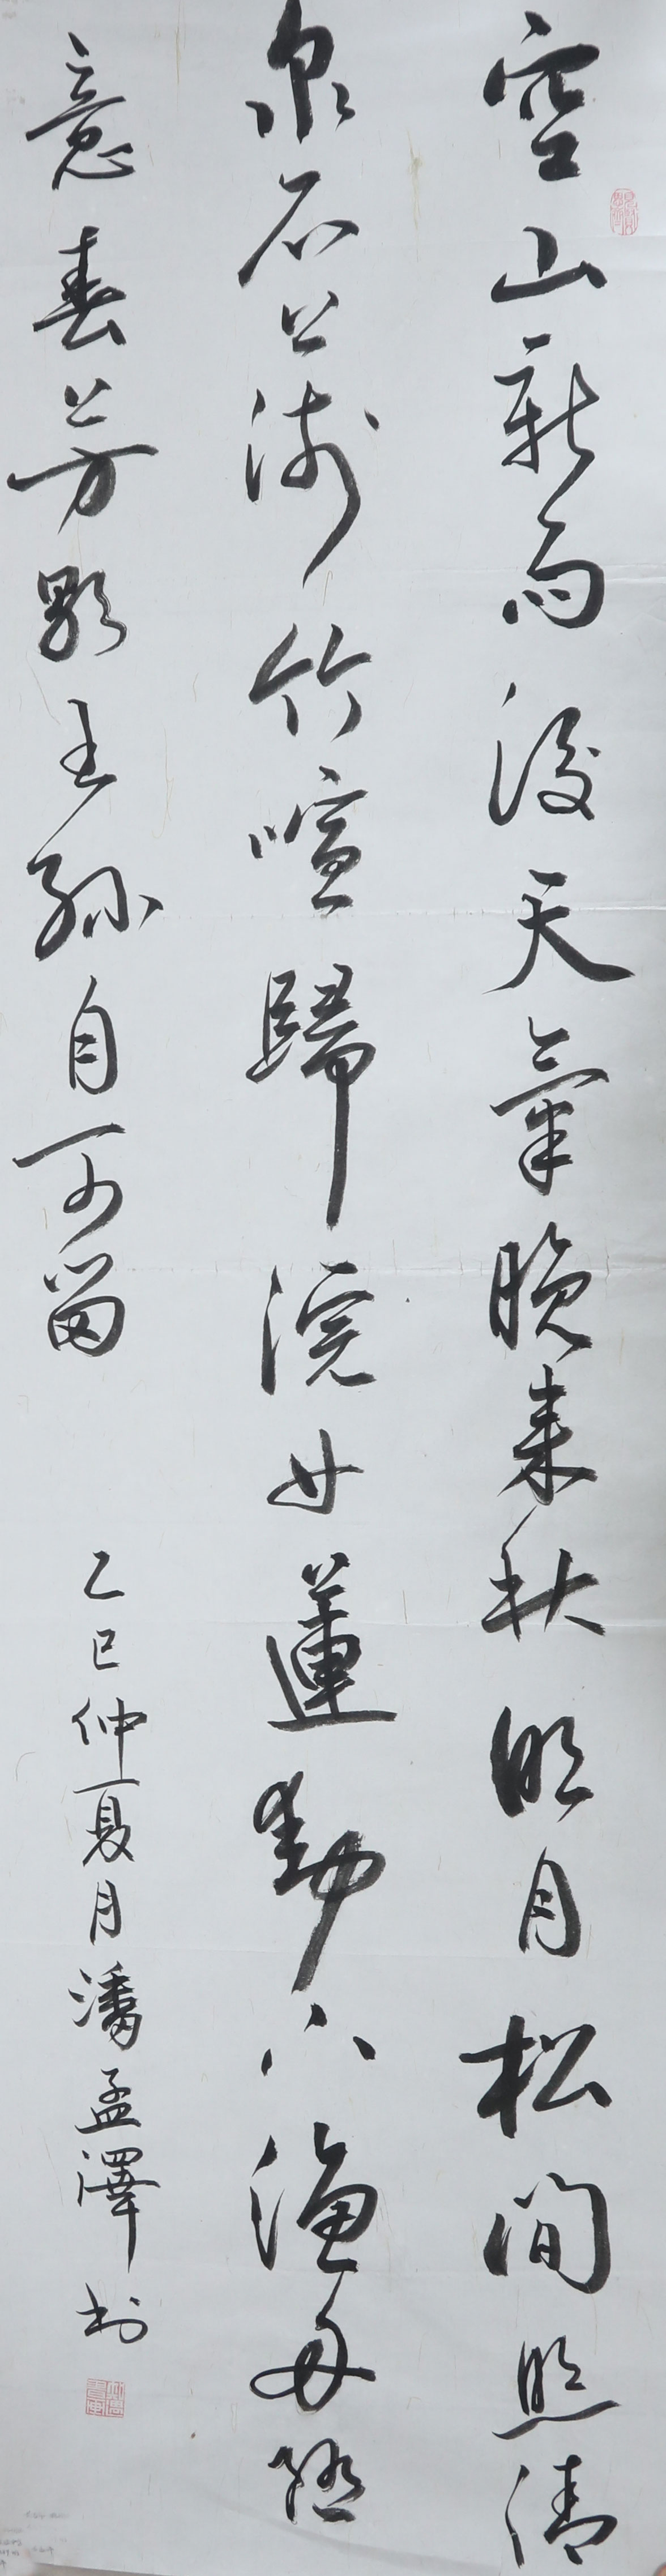 空山新雨後天氣晚来秋明月松間照清
泉石上流竹喧歸浣女蓮動下漁舟随
意春芳歇王孫自可留
乙巳仲夏月潘孟澤书